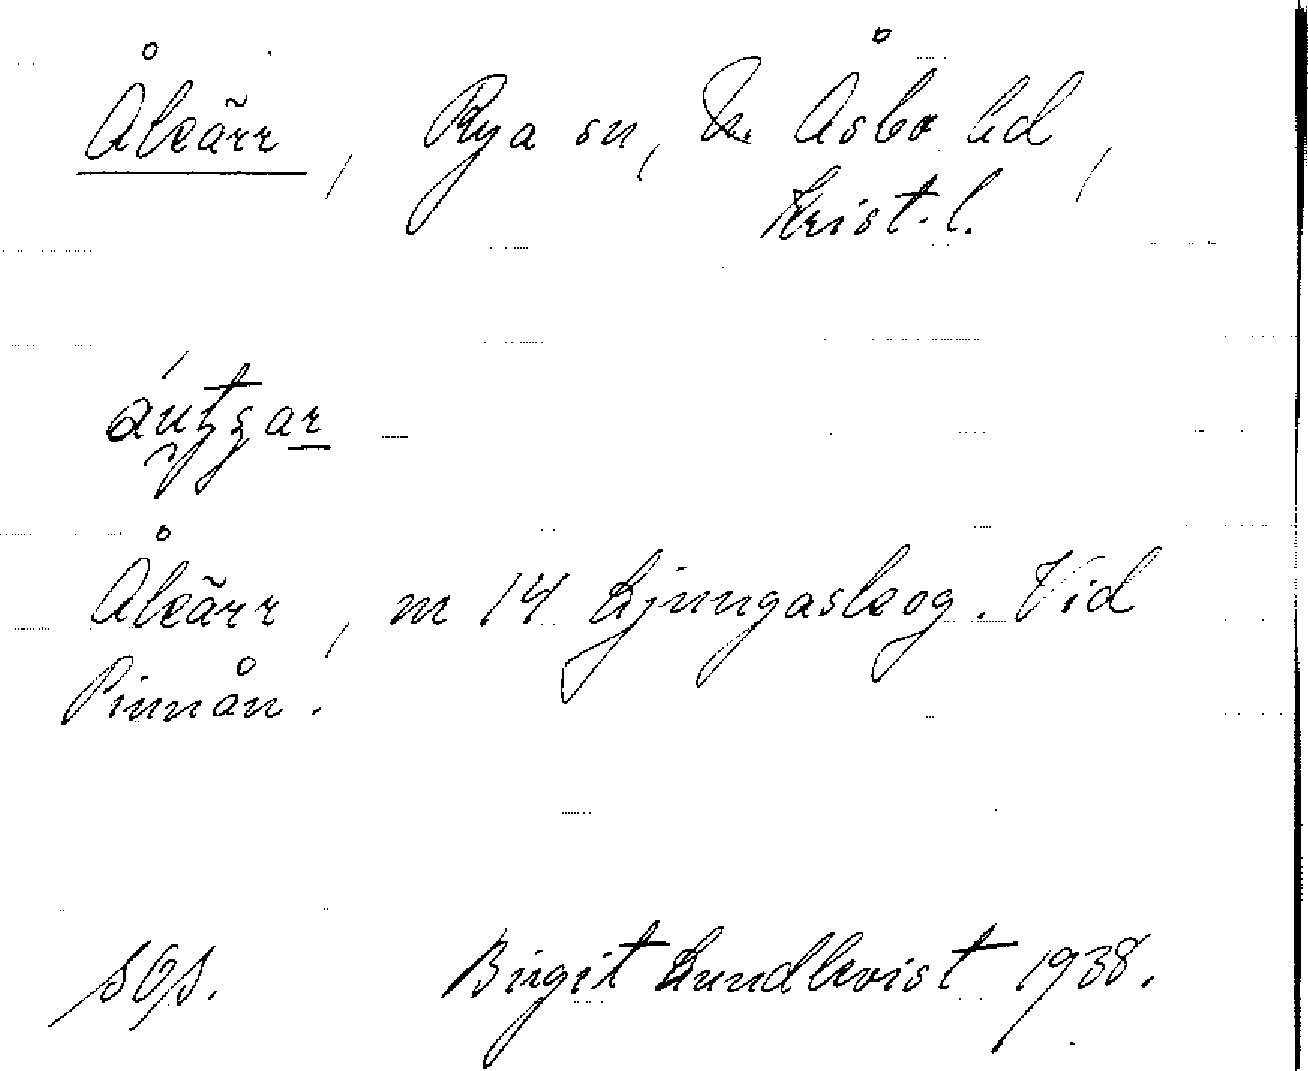 Åkärr, Rya sn, N. Åsbo hd,
Krist. l.
Åkärr, m 14 Ljungaskog. Vid
Pinnån.
sgs. Birgit Lundkvist 1938.